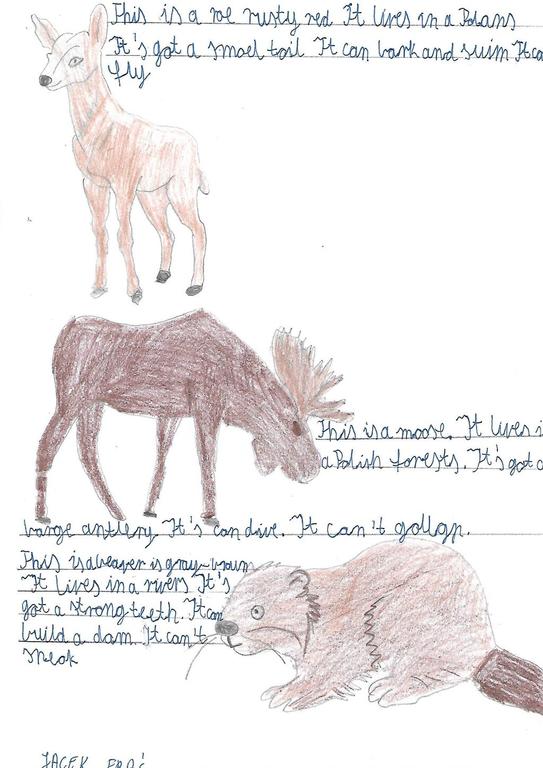 This is a roe rusty red It lives in a Polans
It's got a smoel toil It can bark and suim It ca
fly
This is a moose. It lives i
a Polish forests. It's got a
large antlery. It's can dive. It can't gollop.
This is a beaver is gray-brown
It lives in a rivers It's
got a strong teeth. It can
build a dam. It can't
speak
JACEK